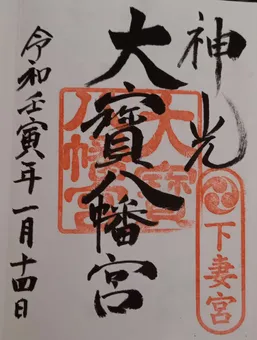 神光
大寳八幡宮
大寳
八幡宮
下妻宮
令和壬寅年一月十四日